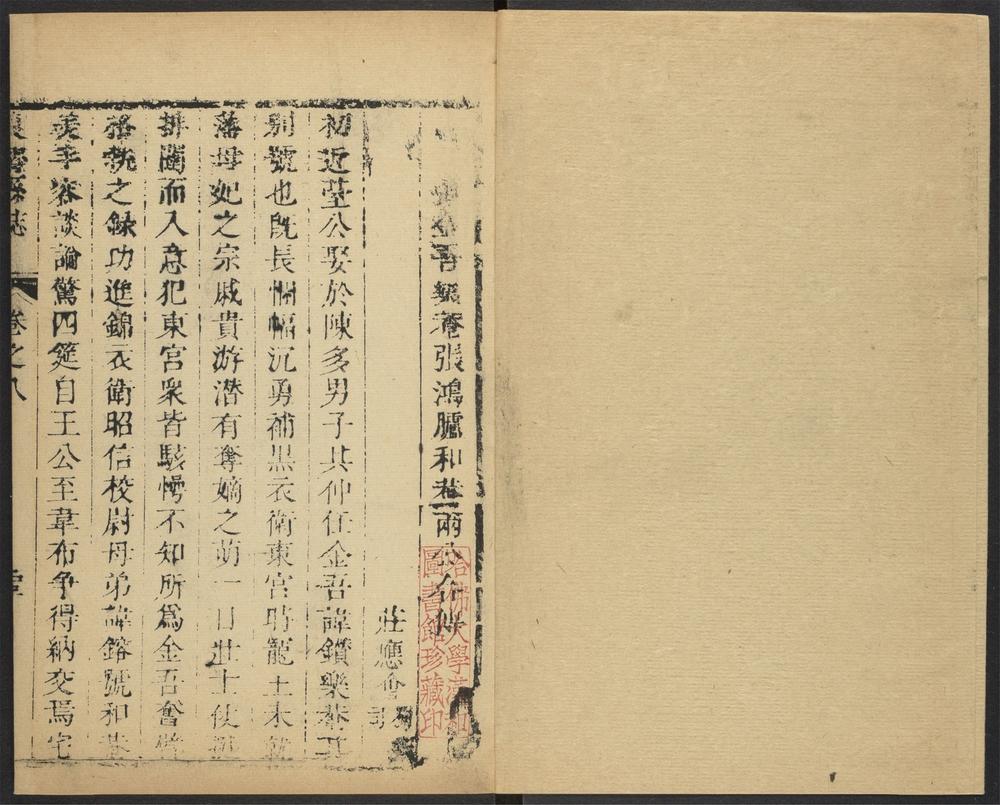 金吾樂菴張鴻臚和菴兩公合傳
莊應會
初近堂公娶於陳多男子其仲任金吾諱鑽樂菴其
別號也既長悃愊沉勇補黑衣衛東宮時寵王未就
藩母妃之宗戚貴游潛有奪嫡之萌一日壯士使挺
排闥而入意犯東宮衆皆駭愕不知所爲金吾奮
格執之録功進錦衣衛昭信校尉母弟諱鎔號和菴
美丰容談論驚四筵自王公至韋布争得納交焉宅
縣誌 卷之八
哈佛大學漢和
圖書館珍藏印